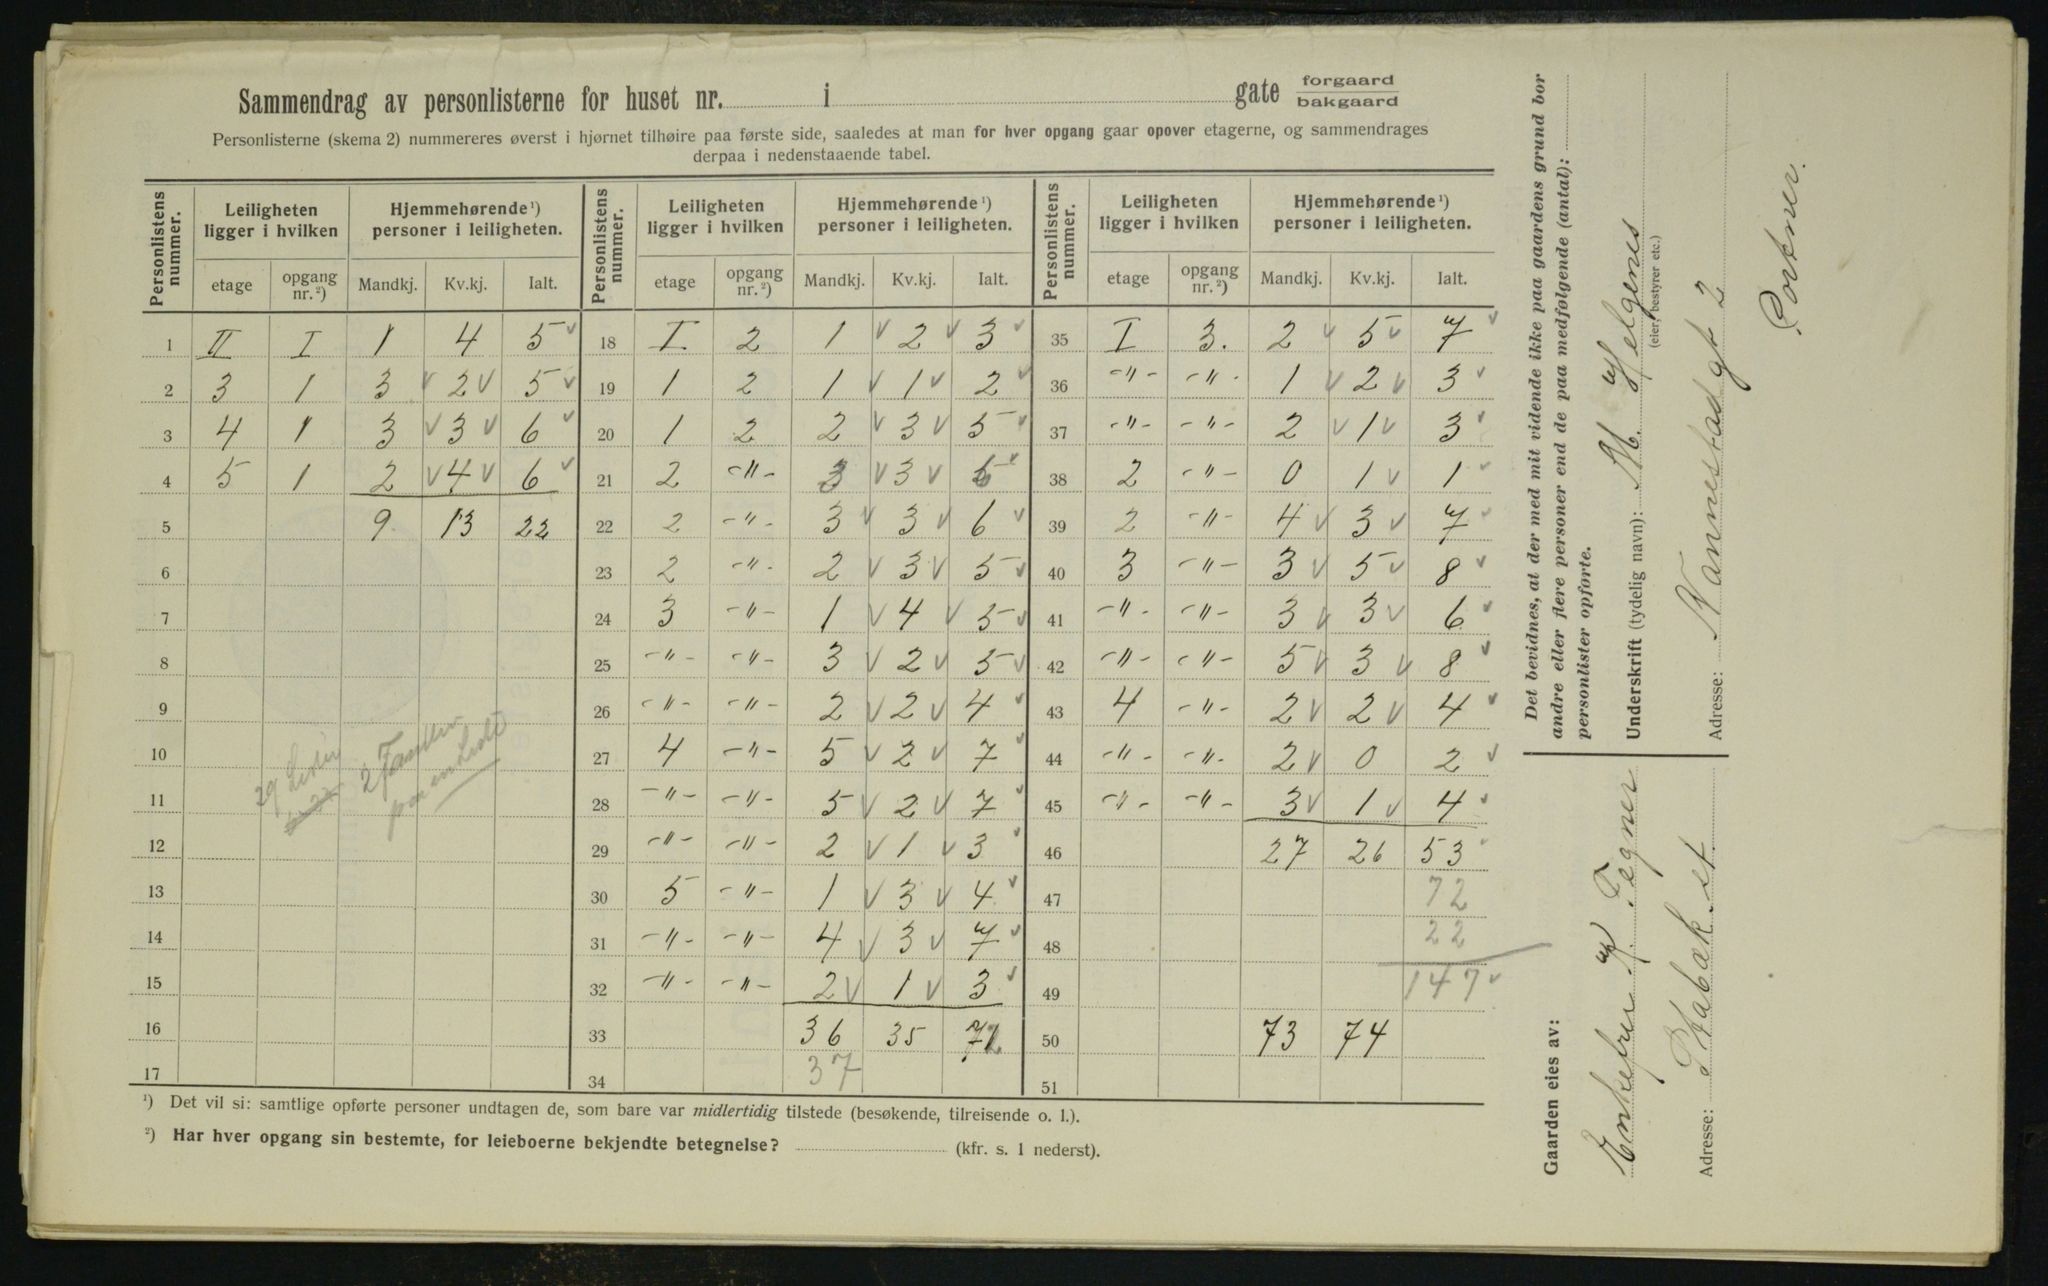 Sammendrag av personlisterne for huset nr. i gate forgaard
bakgaard
Personlisterne (skema 2) nummereres øverst i hjørnet tilhøire paa første side, saaledes at man for hver opgang gaar opover etagerne, og sammendrages
derpaa i nedenstaaende tabel.
Personlistens nummer. Leiligheten ligger i hvilken Hjemmehørende ¹) personer i leiligheten. Personlistens nummer. Leiligheten ligger i hvilken Hjemmehørende ¹) personer i leiligheten. Personlistens nummer. Leiligheten ligger i hvilken Hjemmehørende ¹) personer i leiligheten.
etage opgang nr. ²) Mandkj. Kv.kj. Ialt. etage opgang nr. ²) Mandkj. Kv.kj. Ialt. etage opgang nr. ²) Mandkj. Kv.kj. Ialt.
1 II I 1 4 5 18 I 2 1 2 3 35 I 3. 2 5 7
2 3 1 3 2 5 19 1 2 1 1 2 36 -"- -"- 1 2 3
3 4 1 3 3 6 20 1 2 2 3 5 37 -"- -"- 2 1 3
4 5 1 2 4 6 21 2 -"- 3 3 6 38 2 -"- 0 1 1
5 9 13 22 22 2 -"- 3 3 6 39 2 -"- 4 3 7
6 23 2 -"- 2 3 5 40 3 -"- 3 5 8
7 24 3 -"- 1 4 5 41 -"- -"- 3 3 6
8 25 -"- -"- 3 2 5 42 -"- -"- 5 3 8
9 26 -"- -"- 2 2 4 43 4 -"- 2 2 4
10 27 4 -"- 5 2 7 44 -"- -"- 2 0 2
11 28 -"- -"- 5 2 7 45 -"- -"- 3 1 4
12 29 -"- -"- 2 1 3 46 27 26 53
13 30 5 -"- 1 3 4 47 72
14 31 -"- -"- 4 3 7 48 22
15 32 -"- -"- 2 1 3 49 147
16 33 36 35 72 50 73 74
17 34 37 51
29 Lister
2 Familier
paa en Liste
¹) Det vil si: samtlige opførte personer undtagen de, som bare var midlertidig tilstede (besøkende, tilreisende o. l.).
²) Har hver opgang sin bestemte, for leieboerne bekjendte betegnelse? (kfr. s. 1 nederst).
Det bevidnes, at der med mit vidende ikke paa gaardens grund bor
andre eller flere personer end de paa medfølgende (antal):
personlister opførte.
Underskrift (tydelig navn): M. Helgenes
(eier, bestyrer etc.)
Adresse: Nannestadgt 2
Portner.
Gaarden eies av:
Enkefru K. Tegner
Adresse: Stabæk st.